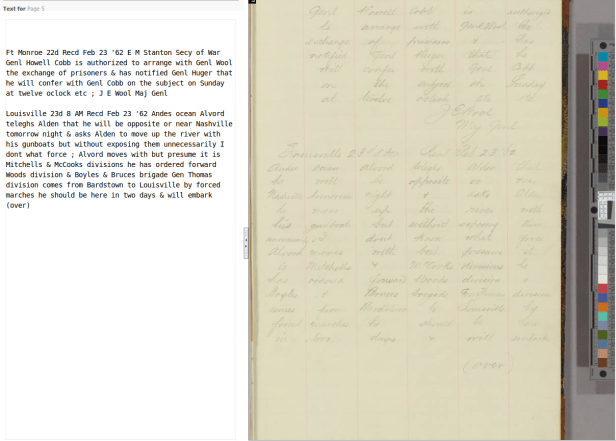 Text for Page 5
Ft Monroe 22d Recd Feb 23 '62 E M Stanton Secy of War
Genl Howell Cobb is authorized to arrange with Genl Wool
the exchange of prisoners & has notified Genl Huger that
he will confer with Genl Cobb on the subject on Sunday
at twelve oclock etc ; J E Wool Maj Genl
Louisville 23d 8 AM Recd Feb 23 '62 Andes ocean Alvord
teleghs Alden that he will be opposite or near Nashville
tomorrow night & asks Alden to move up the river with
his gunboats but without exposing them unnecessarily I
dont what force ; Alvord moves with but presume it is
Mitchells & McCooks divisions he has ordered forward
Woods division & Boyles & Bruces brigade Gen Thomas
division comes from Bardstown to Louisville by forced
marches he should be here in two days & will embark
(over)
Genl Howell Cobb is
to arrange with Genl Wool the
exchange of prisoners & has
notified Genl Huger that he
will confer with Genl Cobb
on the subject on Sunday
at twelve oclock etc
J E Wool
Maj Genl
Louisville 23d
he will opposite or near
Nashville tomorrow night & asks Alden
to move up the river with
his gunboats but without exposing them
dont what force
Alvord moves with but presume it
is Mitchells & McCooks divisions he
has Woods division &
Boyles & Bruces division
comes from Bardstown to Louisville by
forced marches he should be here
in two days & will embark
(over)